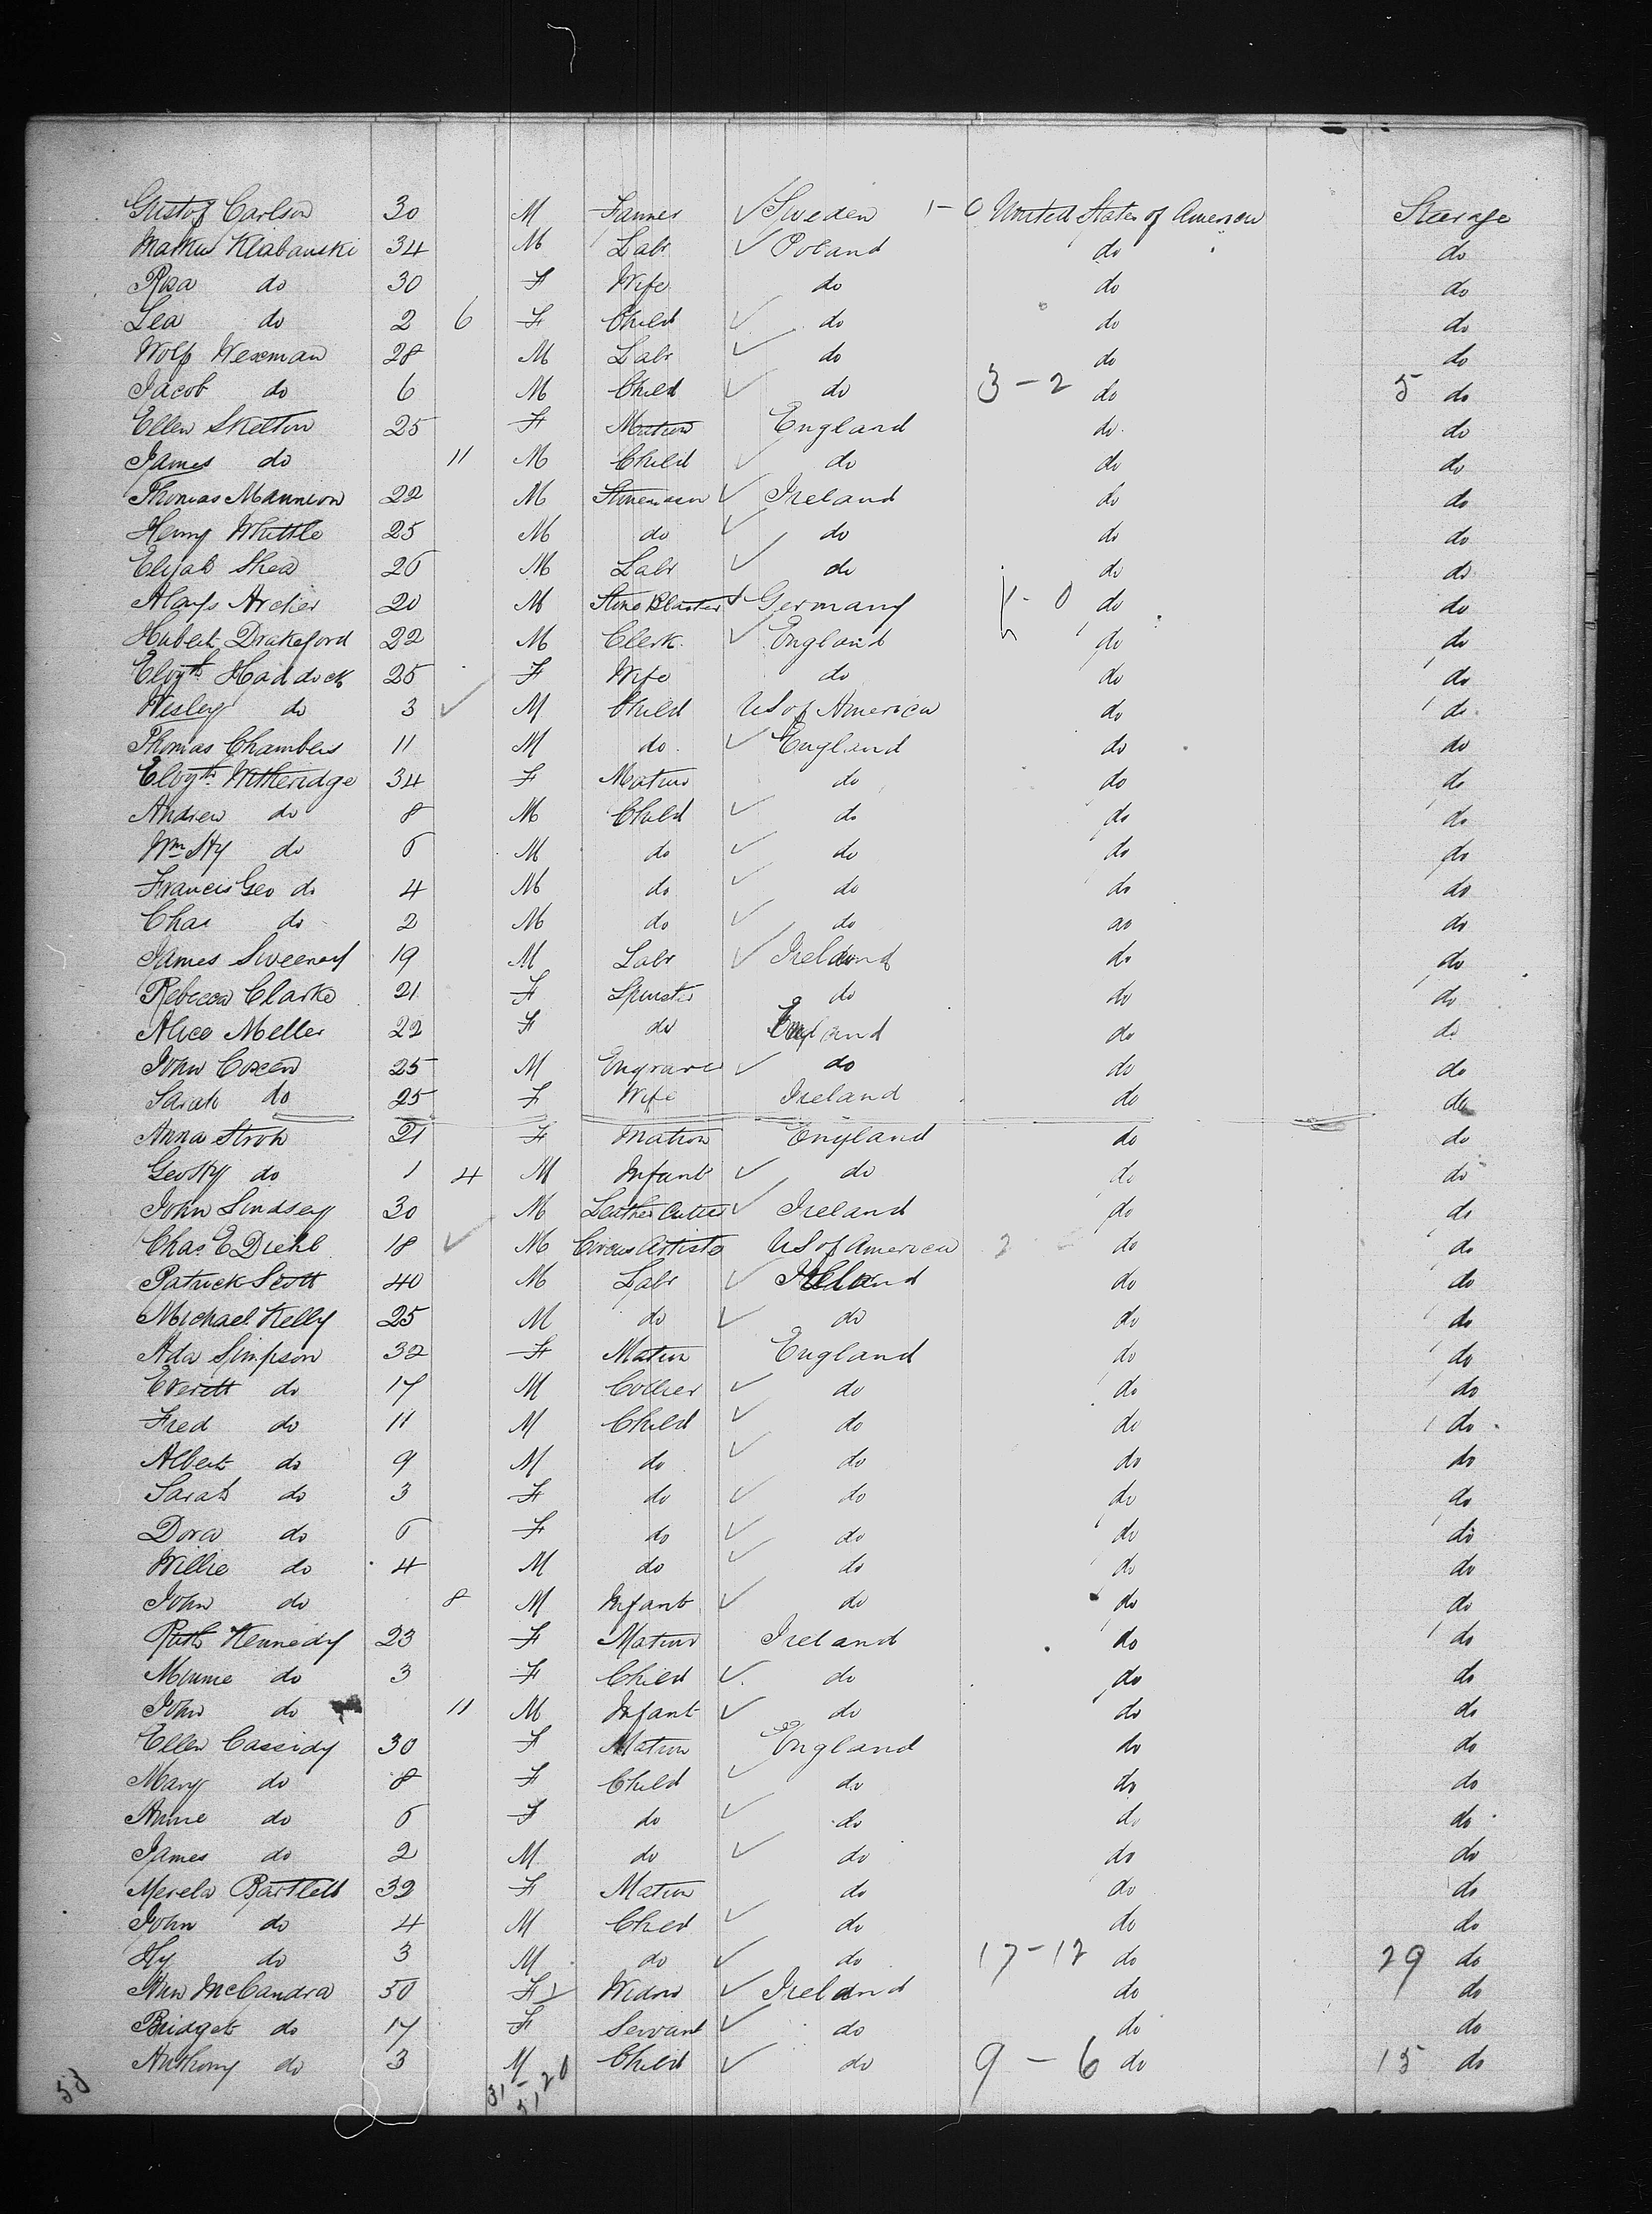 Gustof Carlson 30 M Farmer ✓ Sweden 1-0 United States of America Steerage
Klabanski 34 M Labr ✓ Poland do do
Rosa do 30 F Wife do do do
Lea do 2 6 F Child ✓ do do do
Wolf Wexman 28 M Labr ✓ do do do
Jacob do 6 M Child ✓ do 3-2 do 5 do
Ellen Skelton 25 F Matron England do do
James do 11 M Child ✓ do do do
Thomas Mannion 22 M Stonemason ✓ Ireland do do
Henry Whittle 25 M do ✓ do do do
Elijah Shea 26 M Labr ✓ do do do
Aloys Archer 20 M Stone Blaster ✓ Germany 1-0 do do
Hubert Drakeford 22 M Clerk ✓ England do do
Elizth Haddock 25 F Wife do do do
Wesley do 3 ✓ M Child US of America do do
Thomas Chambers 11 M do ✓ England do do
Elizth Witheridge 34 F Matron do do do
Andrew do 8 M Child ✓ do do do
Wm Hy do 6 M do ✓ do do do
Francis Geo do 4 M do ✓ do do do
Chas do 2 M do ✓ do do do
James Sweeney 19 M Labr ✓ Ireland do do
Rebecca Clarke 21 F Spinster do do do
Alice Meller 22 F do England do do
John Coxen 25 M Engraver ✓ do do do
Sarah do 25 F Wife Ireland do do
Anna Stroh 21 F Matron England do do
Geo Hy do 1 4 M Infant ✓ do do do
John Lindsey 30 M Leather Cutter ✓ Ireland do do
Chas E Diehl 18 ✓ M Circus Artiste US of America 2 do do
Patrick Scott 40 M Labr ✓ Ireland do do
Michael Kelly 25 M do ✓ do do do
Ada Simpson 32 F Matron England do do
Everett do 17 M Collier ✓ do do do
Fred do 11 M Child ✓ do do do
Albert do 9 M do ✓ do do do
Sarah do 3 F do ✓ do do do
Dora do 6 F do ✓ do do do
Willie do 4 M do ✓ do do do
John do 8 M Infant ✓ do do do
Ruth Kennedy 23 F Matron Ireland do do
Minnie do 3 F Child ✓ do do do
John do 11 M Infant ✓ do do do
Ellen Cassidy 30 F Matron England do do
Mary do 8 F Child ✓ do do do
Annie do 6 F do ✓ do do do
James do 2 M do ✓ do do do
Merela Bartlett 32 F Matron do do do
John do 4 M Child ✓ do do do
Hy do 3 M do ✓ do 17-12 do 29 do
Ann McCandra 50 F Widow ✓ Ireland do do
Bridget do 17 F Servant ✓ do do do
Anthony do 3 M Child ✓ do 9-6 do 15 do
53